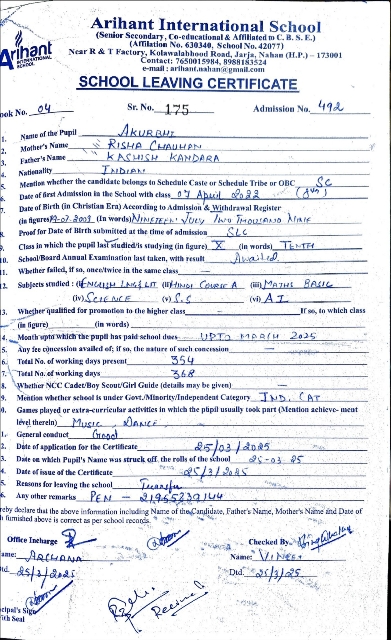 Arihant International School
(Senior Secondary, Co-educational & Affiliated to C. B. S. E.)
(Affilation No. 630340, School No. 42077)
Near R & T Factory, Kolawalabhood Road, Jarja, Nahan (H.P.) – 173001
Contact: 7650015984, 8988183524
e-mail : arihant.nahan@gmail.com
Arihant
INTERNATIONAL
SCHOOL
SCHOOL LEAVING CERTIFICATE
ook No. 04 Sr. No. 175 Admission No. 492
1. Name of the Pupil
2. Mother's Name RISHA CHAUHAN
3. Father's Name KASHISH KANDARA
4. Nationality INDIAN
5. Mention whether the candidate belongs to Schedule Caste or Schedule Tribe or OBC SC
6. Date of first Admission in the School with class 07 April 2022 (8th)
7. Date of Birth (in Christian Era) According to Admission & Withdrawal Register
(in figures) 19-07-2009 (In words) NINETEEN JULY TWO THOUSAND NINE
8. Proof for Date of Birth submitted at the time of admission SLC
9. Class in which the pupil last studied/is studying (in figure) X (in words) TENTH
10. School/Board Annual Examination last taken, with result Awaited
11. Whether failed, if so, once/twice in the same class —
12. Subjects studied : (i) ENGLISH LNG & LIT (ii) HINDI COURSE A (iii) MATHS BASIC
(iv) SCIENCE (v) S.S (vi) AI
13. Whether qualified for promotion to the higher class If so, to which class
(in figure) (in words)
4. Month upto which the pupil has paid school dues UPTO MARCH 2025
5. Any fee concession availed of; if so, the nature of such concession —
6. Total No. of working days present 354
7. Total No. of working days 368
8. Whether NCC Cadet/Boy Scout/Girl Guide (details may be given) —
9. Mention whether school is under Govt./Minority/Independent Category IND. CAT
0. Games played or extra-curricular activities in which the pupil usually took part (Mention achieve- ment
level therein) MUSIC, DANCE
1. General conduct Good
2. Date of application for the Certificate 25/03/2025
3. Date on which Pupil's Name was struck off the rolls of the school 25-03-25
4. Date of issue of the Certificate 25/3/2025
5. Reasons for leaving the school Transfer
6. Any other remarks PEN - 21965239144
reby declare that the above information including Name of the Candidate, Father's Name, Mother's Name and Date of
h furnished above is correct as per school records.
Office Incharge Checked By
ame: ARCHANA Name: VINEET
td. 25/3/2025 Dtd. 25/3/25
Received
ncipal's Sign
ith Seal